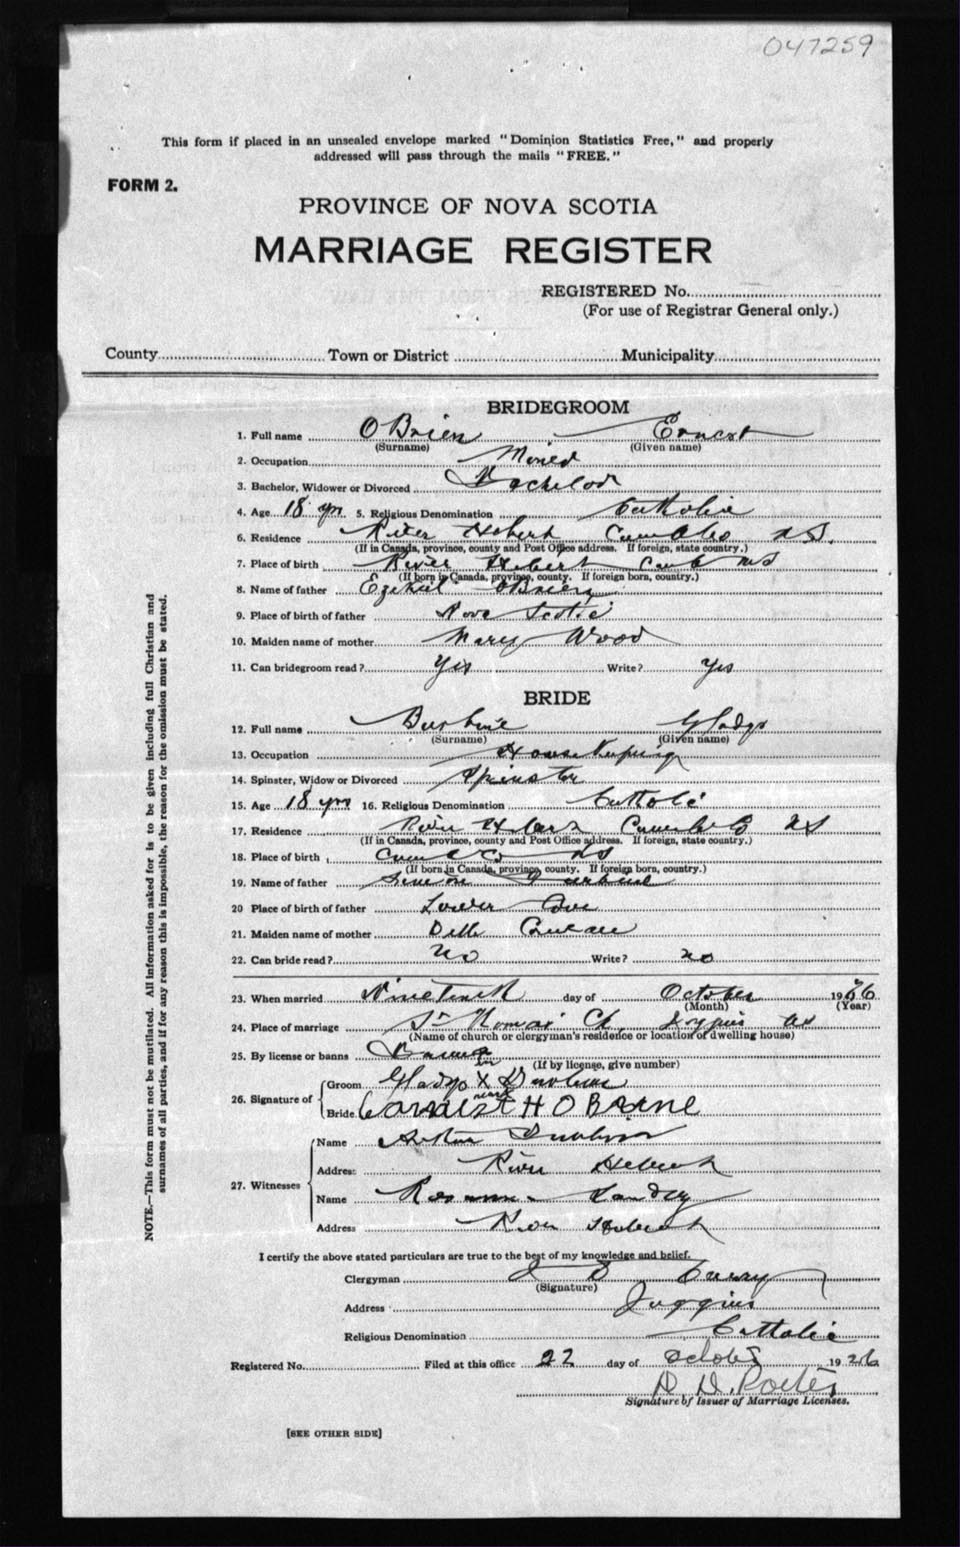 047259
This form if placed in an unsealed envelope marked "Dominion Statistics Free," and properly
addressed will pass through the mails "FREE."
FORM 2.
PROVINCE OF NOVA SCOTIA
MARRIAGE REGISTER
REGISTERED No.
(For use of Registrar General only.)
County Town or District Municipality
BRIDEGROOM
1. Full name OBrien Ernest
(Surname) (Given name)
2. Occupation Miner
3. Bachelor, Widower or Divorced Bachelor
4. Age 18 yrs 5. Religious Denomination Catholic
6. Residence River Hebert Cumb Co NS.
(If in Canada, province, county and Post Office address. If foreign, state country.)
7. Place of birth River Hebert Cumb NS
(If born in Canada, province, county. If foreign born, country.)
8. Name of father Ezekiel OBrien
9. Place of birth of father Nova Scotia
10. Maiden name of mother Mary Wood
11. Can bridegroom read? Yes Write? Yes
BRIDE
12. Full name Gladys
(Surname) (Given name)
13. Occupation Housekeeping
14. Spinster, Widow or Divorced Spinster
15. Age 18 yrs 16. Religious Denomination Catholic
17. Residence River Hebert Cumb Co NS
(If in Canada, province, county and Post Office address. If foreign, state country.)
18. Place of birth Cumb Co NS
(If born in Canada, province, county. If foreign born, country.)
19. Name of father Simeon
20 Place of birth of father Lower Cove
21. Maiden name of mother
22. Can bride read? No Write? no
23. When married Nineteenth day of October 1926
(Month) (Year)
24. Place of marriage St Thomas Ch. Joggins NS
(Name of church or clergyman's residence or location of dwelling house)
25. By license or banns Banns
(If by license, give number)
26. Signature of
Groom Gladys X
her
mark
Bride. H O BRINE
27. Witnesses
Name Arthur
Address River Hebert
Name Landry
Address River Hebert
I certify the above stated particulars are true to the best of my knowledge and belief.
Clergyman
(Signature)
Address Joggins
Religious Denomination Catholic
Registered No. Filed at this office 22 day of October 1926
D. D. Porter
Signature of Issuer of Marriage Licenses.
[SEE OTHER SIDE]
NOTE.—This form must not be mutilated. All information asked for is to be given including full Christian and
surnames of all parties, and if for any reason this is impossible, the reason for the omission must be stated.